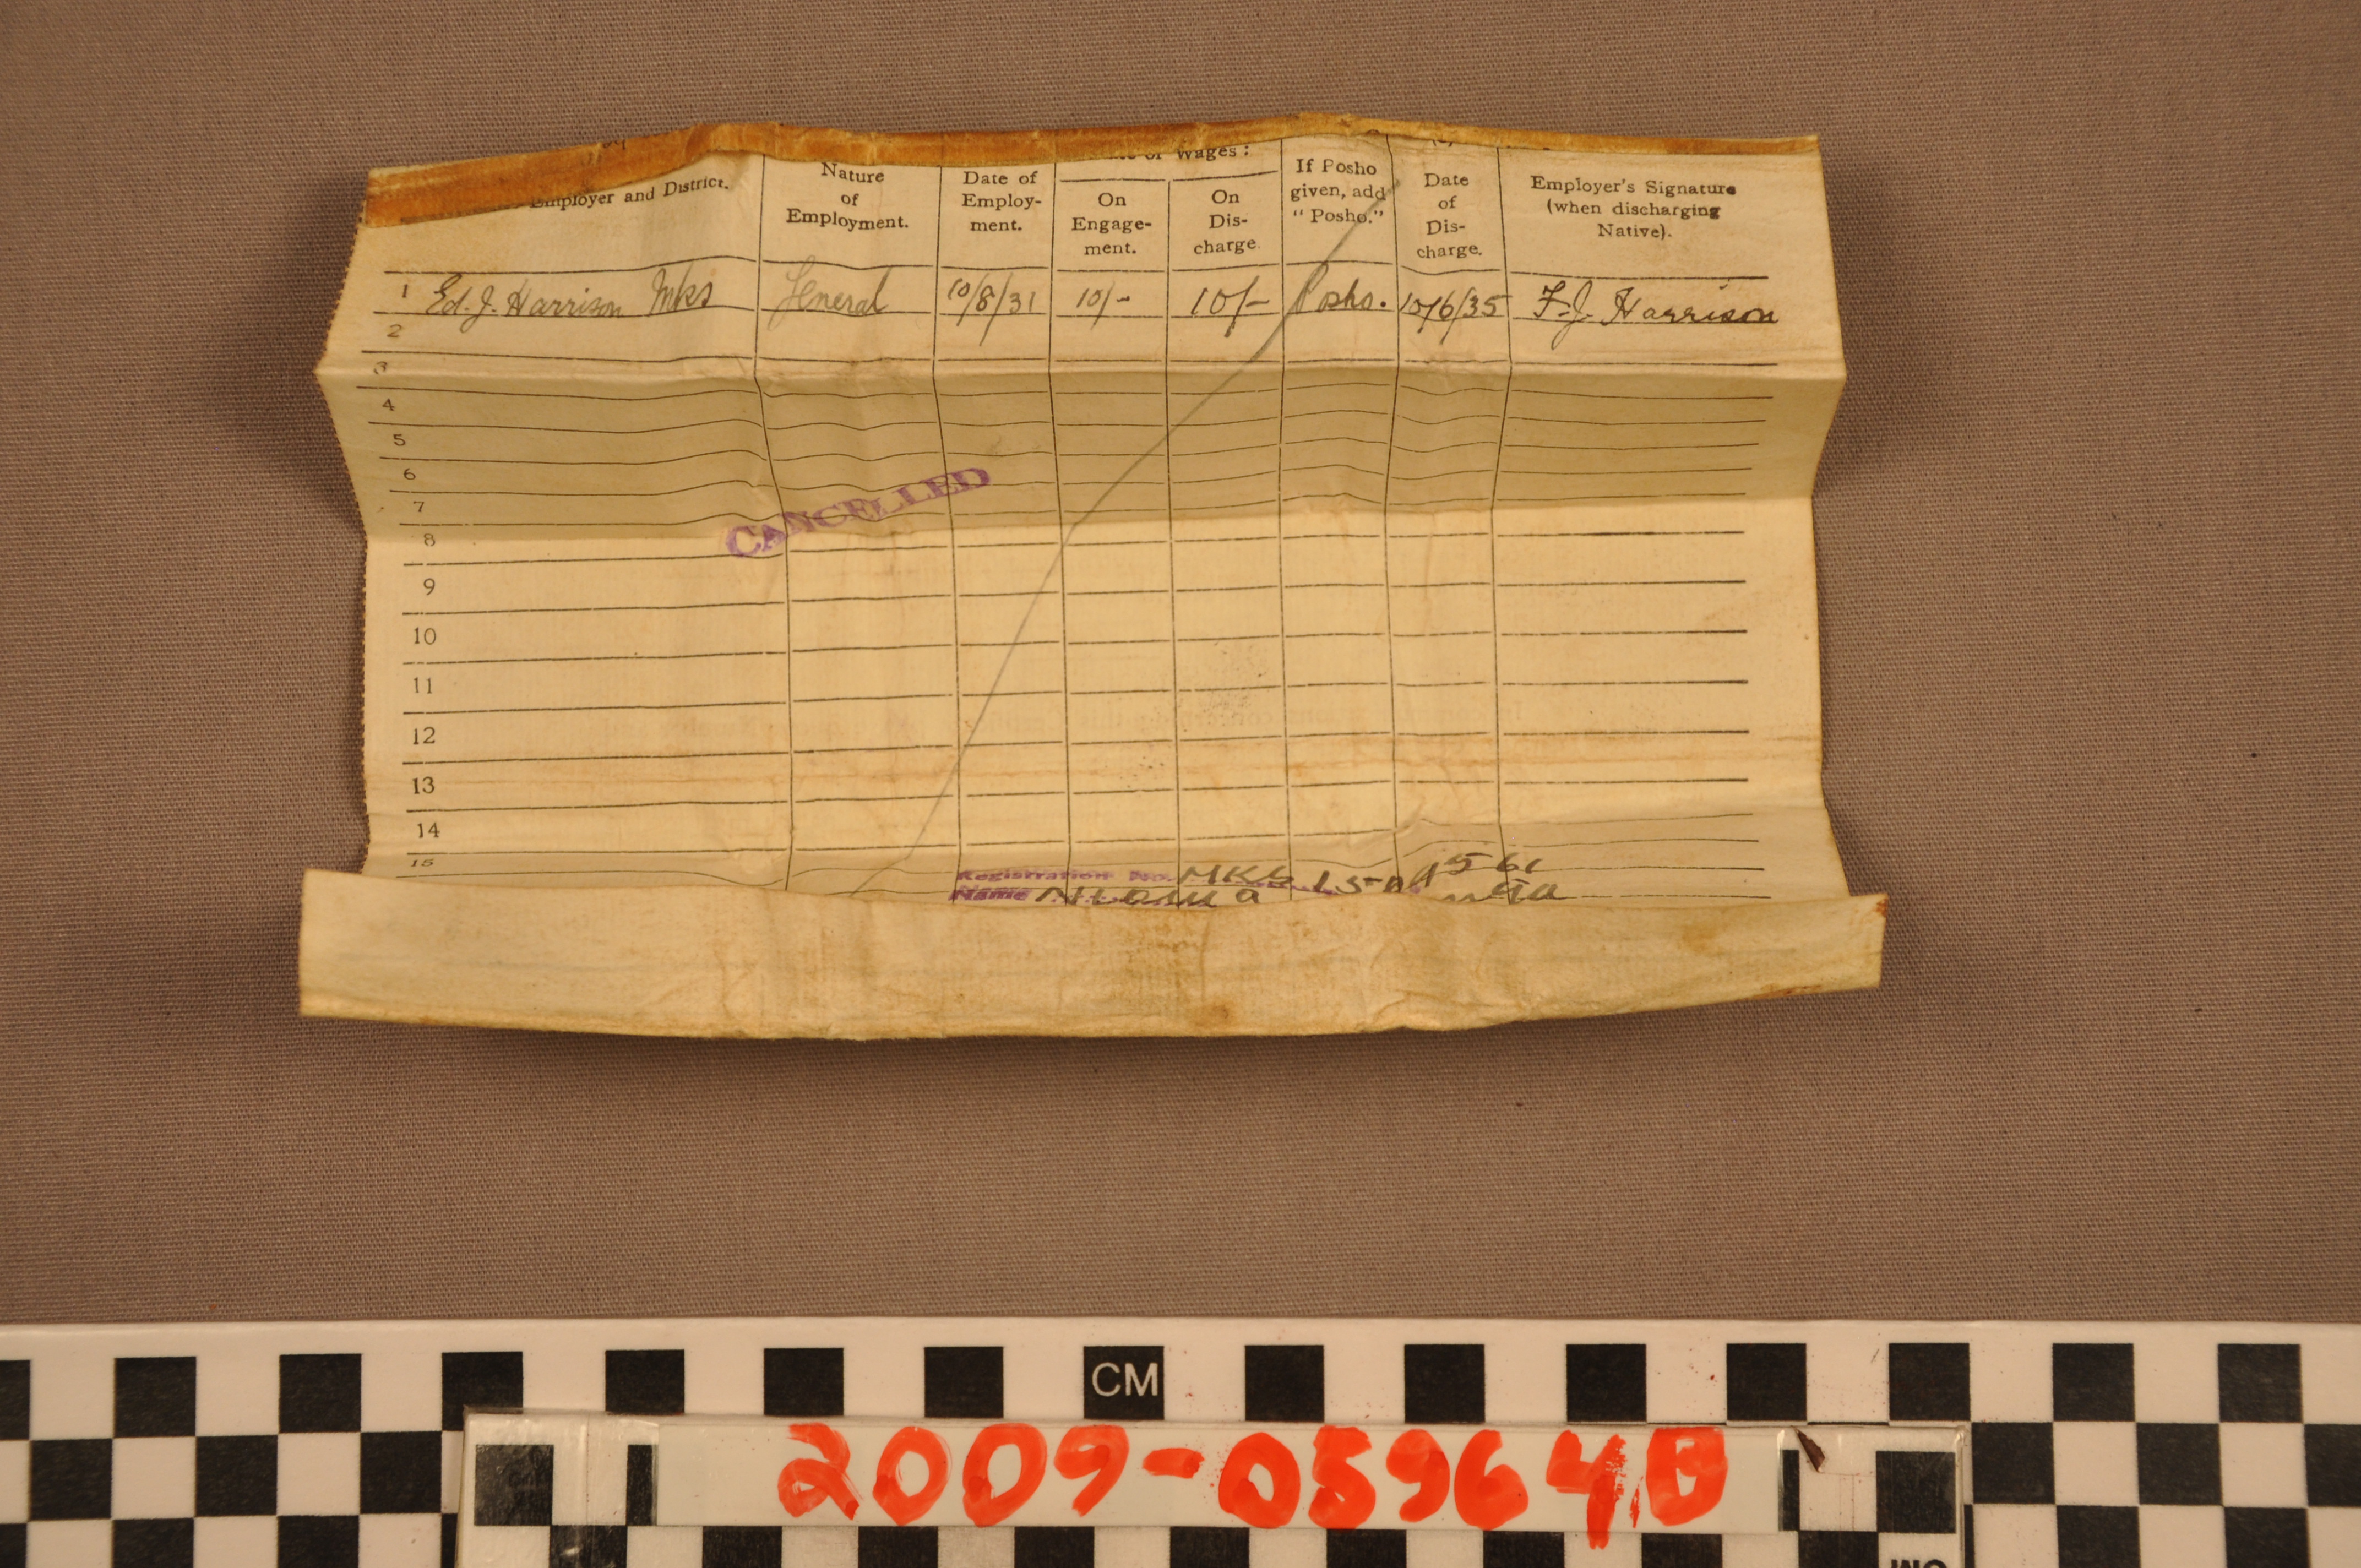 of Wages:
Employer and District.
Nature of Employment.
Date of Employ- ment.
On Engage- ment.
On Dis- charge.
If Posho given, add "Posho."
Date of Dis- charge.
Employer's Signature (when discharging Native).
1 Ed. J. Harrison Mks General 10/8/31 10/- 10/- Posho. 10/6/35 F. J. Harrison
2
3
4
5
6
7
CANCELLED
8
9
10
11
12
13
14
15
Registration No. MKS
Name
CM
2009-05964B
CM